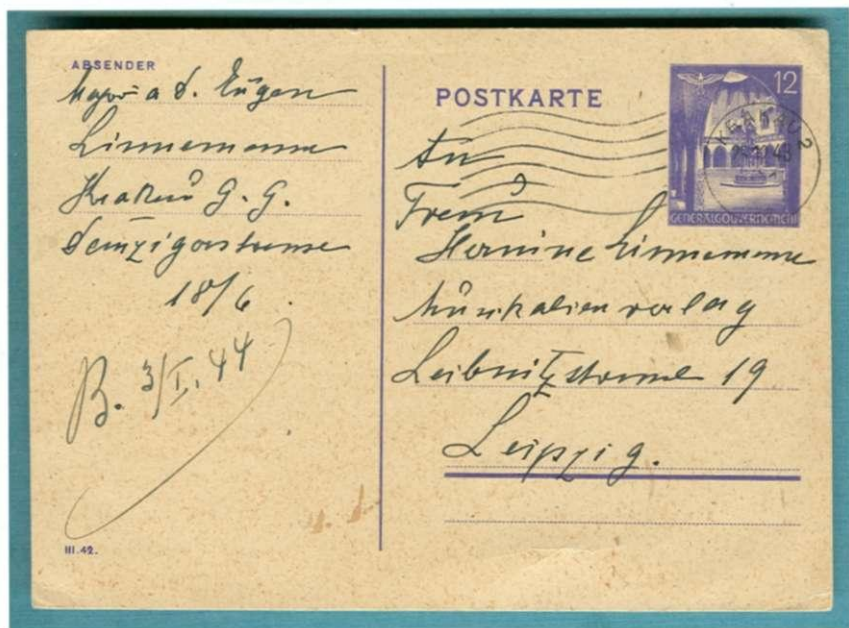 ABSENDER
Major a D. Eugen
Linnemann
Krakau G. G.
18/6
B. 3/I. 44
III.42.
POSTKARTE
12
KRAKAU 2
GENERALGOUVERNEMENT
An
Frau
Hermine Linnemann
Musikalienverlag
Leibnitzstrasse 19
Leipzig.